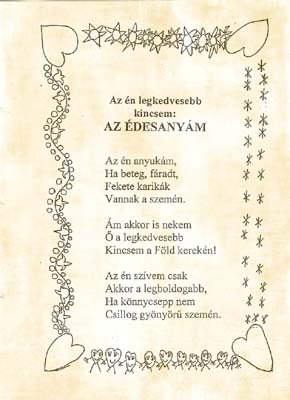 Az én legkedvesebb
kincsem:
AZ ÉDESANYÁM
Az én anyukám,
Ha beteg, fáradt,
Fekete karikák
Vannak a szemén.
Ám akkor is nekem
Ő a legkedvesebb
Kincsem a Föld kerekén!
Az én szívem csak
Akkor a legboldogabb,
Ha könnycsepp nem
Csillog gyönyörű szemén.